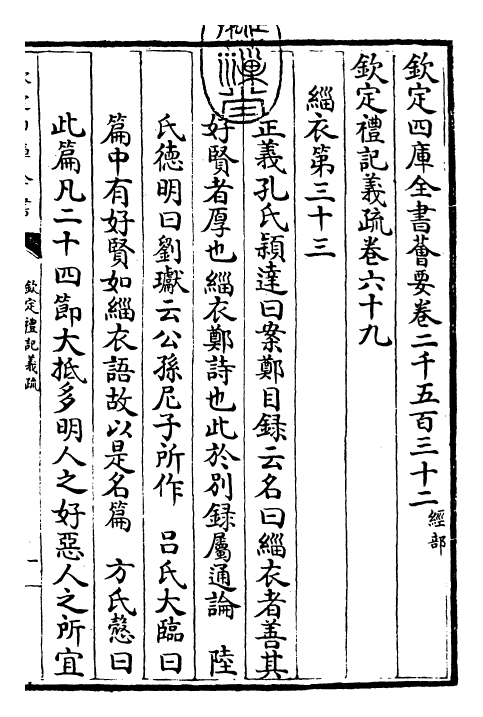 欽定四庫全書薈要卷二千五百三十二 經部
欽定禮記義疏卷六十九
緇衣第三十三
正義孔氏穎達曰案鄭目録云名曰緇衣者善其
好賢者厚也緇衣鄭詩也此於别録屬通論 陸
氏德明曰劉瓛云公孫尼子所作 吕氏大臨曰
篇中有好賢如緇衣語故以是名篇 方氏慤曰
此篇凡二十四節大抵多明人之好惡人之所宜
欽定禮記義疏
一